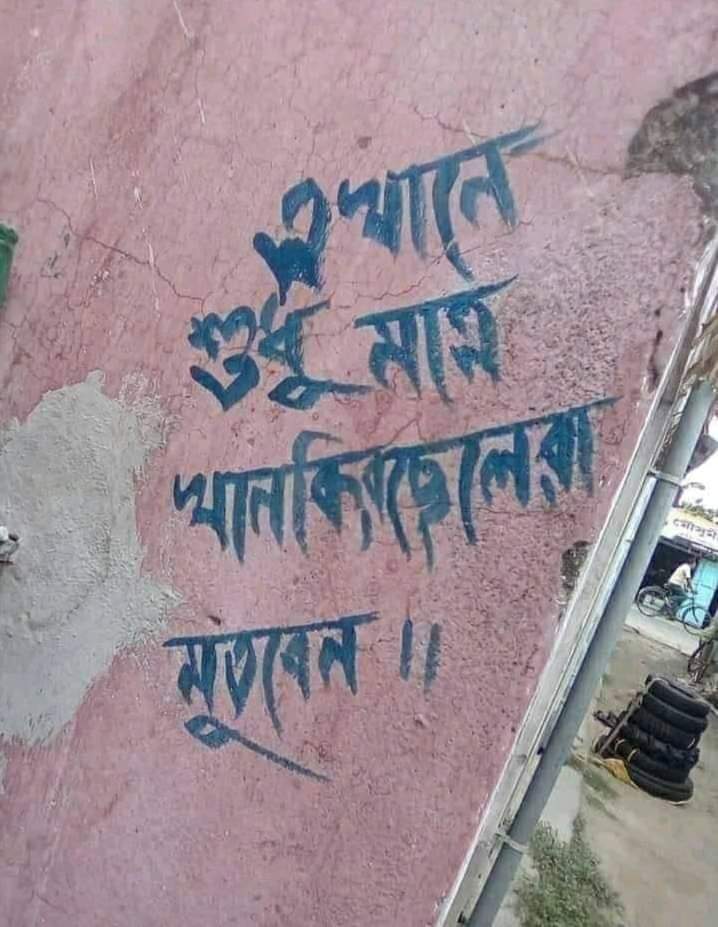 এখানে
শুধু মাত্র
খানকিরছেলেরা
মুতবেন ॥
মৌসুমী